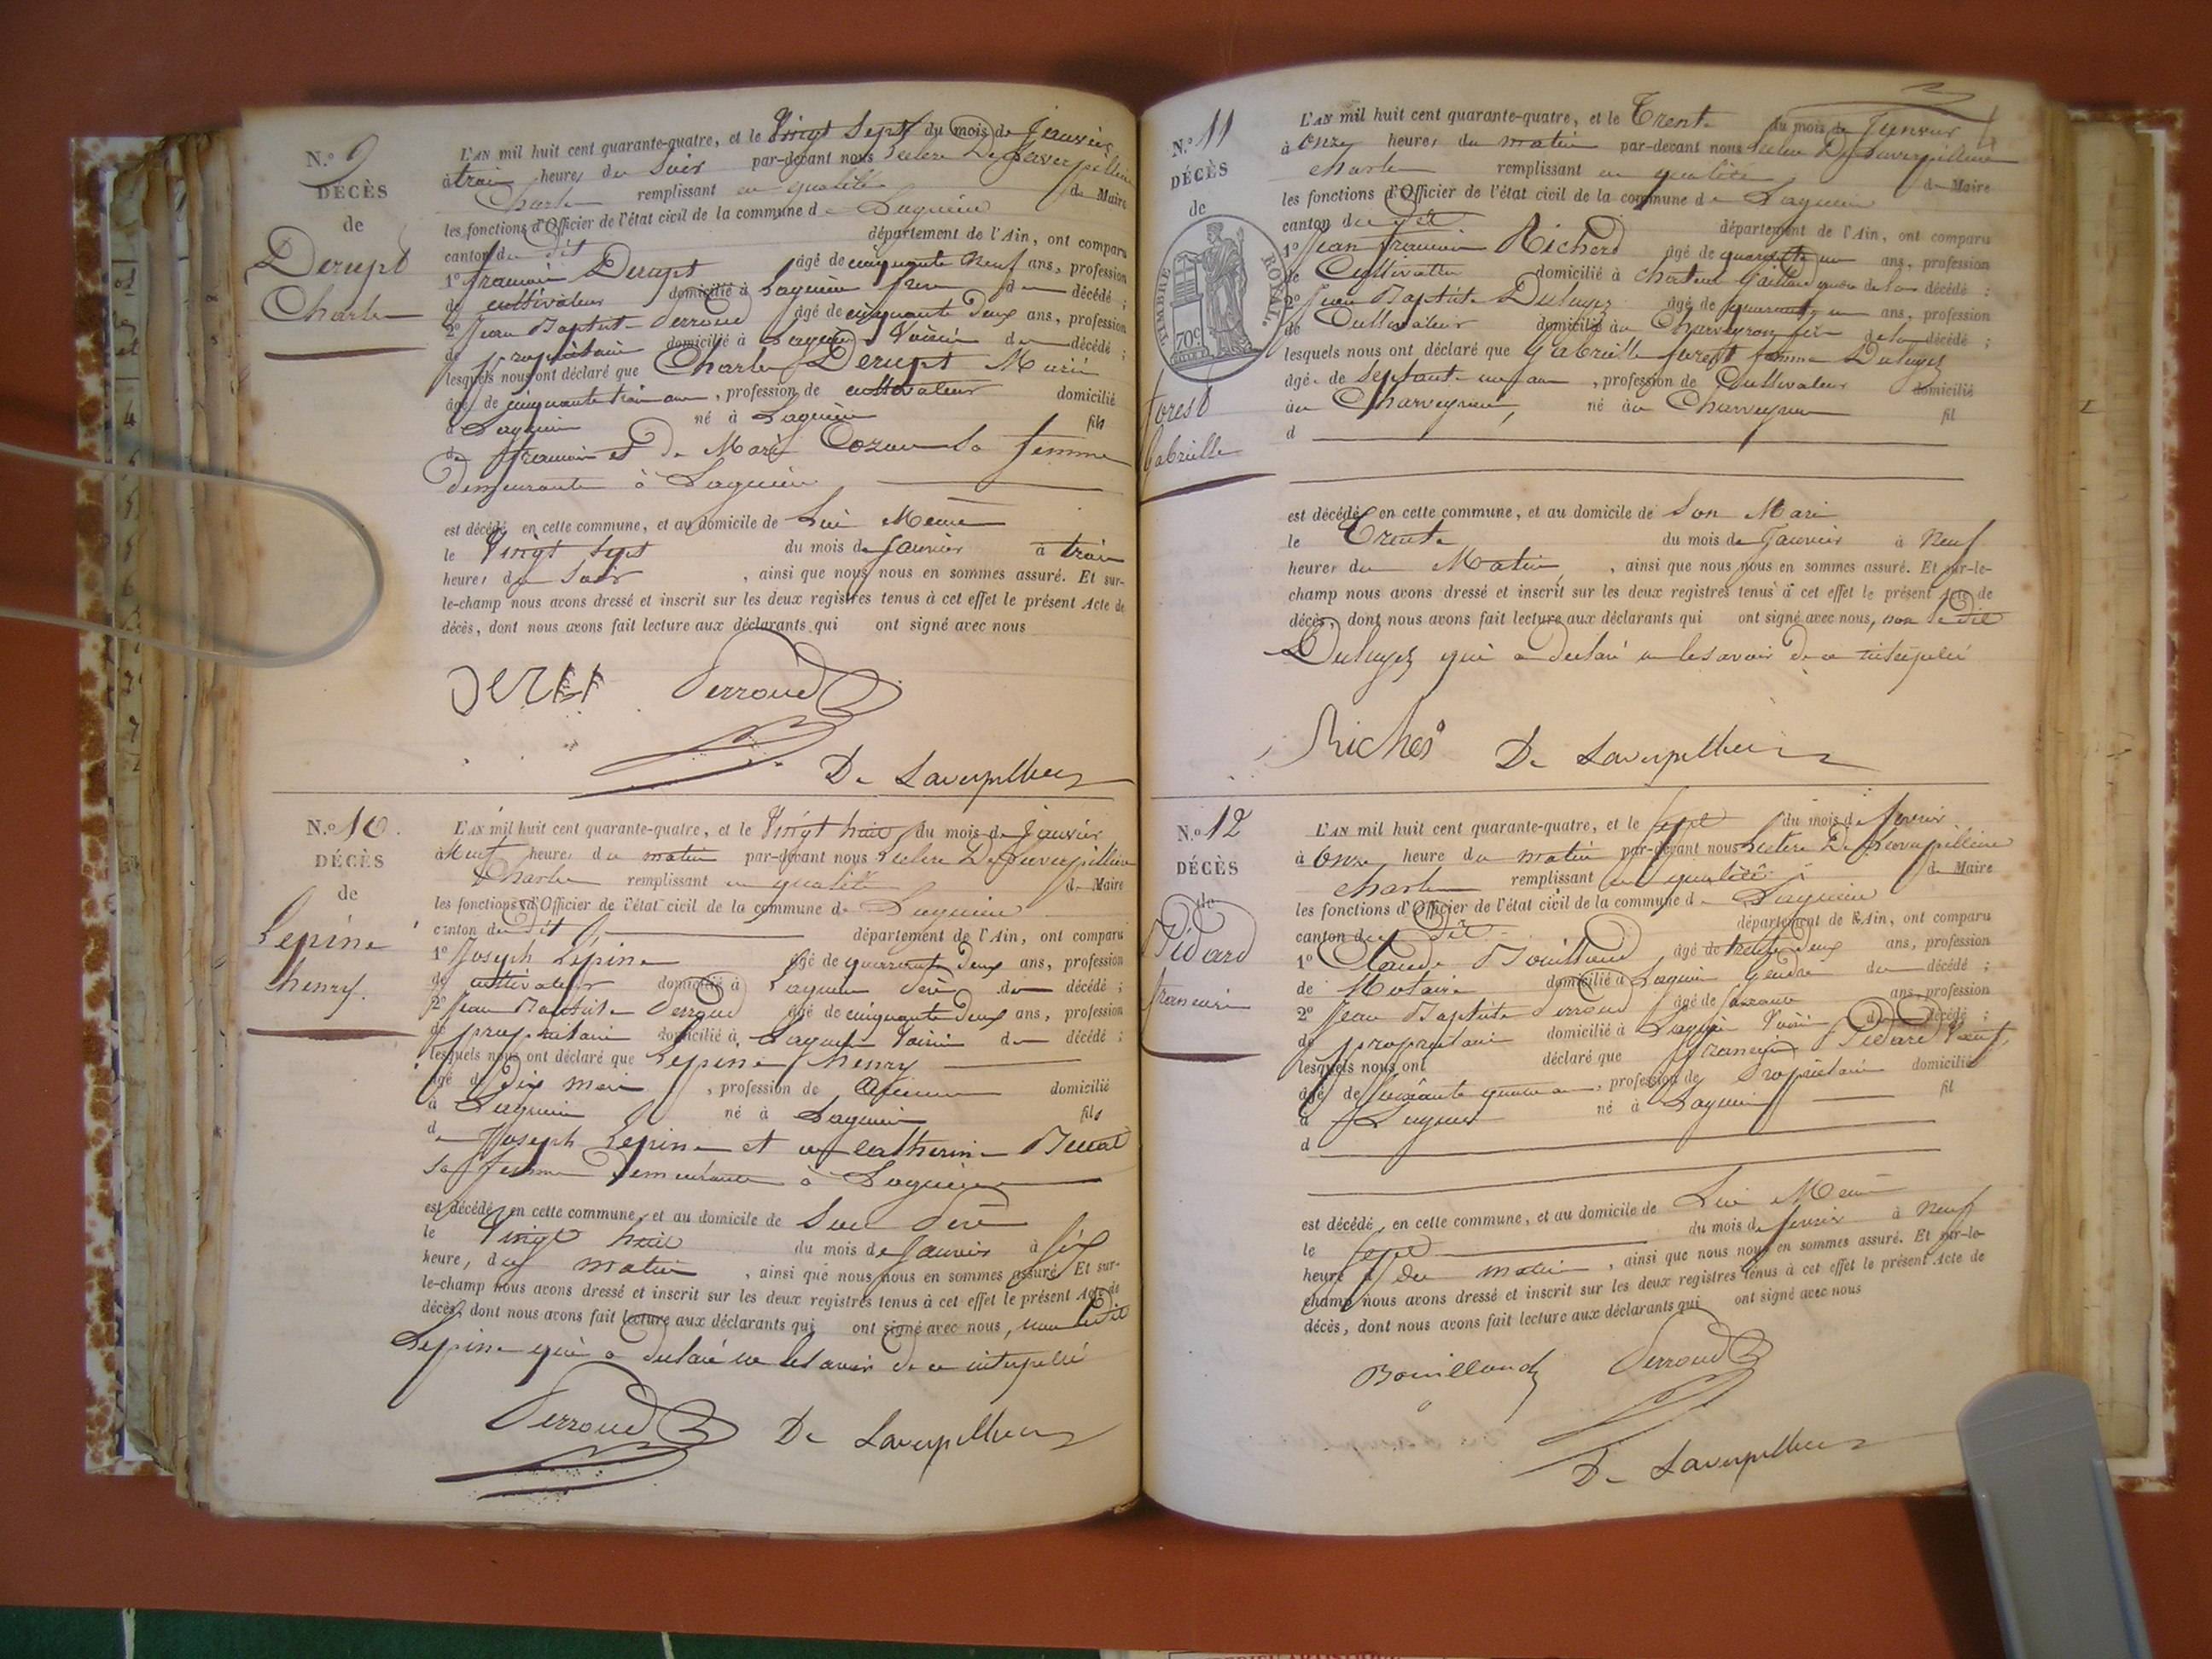 N.º 9
DÉCÈS
de
Derupt
Charle
L'AN mil huit cent quarante-quatre, et le Vingt Sept du mois de Janvier
à trois heures du Soir par-devant nous
Charle remplissant en qualité de Maire
les fonctions d'Officier de l'état civil de la commune de Lagnieu
canton du dit département de l'Ain, ont comparu
1º françois Derupt âgé de cinquante Neuf ans, profession
de cultivateur domicilié à Lagnieu frere du décédé ;
2º Jean Baptiste Perroud âgé de cinquante deux ans, profession
de propriétaire domicilié à Lagnieu Voisin du décédé ;
lesquels nous ont déclaré que Charle Derupt Marié
âgé de cinquante trois ans, profession de cultivateur domicilié
à Lagnieu né à Lagnieu fils
de françois et de Marie sa femme
demeurante à Lagnieu
est décédé en cette commune, et au domicile de Lui Même
le Vingt Sept du mois de Janvier à trois
heures du Soir, ainsi que nous nous en sommes assuré. Et sur-
le-champ nous avons dressé et inscrit sur les deux registres tenus à cet effet le présent Acte de
décès, dont nous avons fait lecture aux déclarants qui ont signé avec nous
Perroud
De Laverpilliere
N.º 10
DÉCÈS
de
Lepine
henry.
L'AN mil huit cent quarante-quatre, et le Vingt huit du mois de Janvier
à Neuf heures du matin par-devant nous
Charle remplissant en qualité de Maire
les fonctions d'Officier de l'état civil de la commune de Lagnieu
canton du dit département de l'Ain, ont comparu
1º Joseph Lepine âgé de quarante deux ans, profession
de cultivateur domicilié à Lagnieu Père du décédé ;
2º Jean Baptiste Perroud âgé de cinquante deux ans, profession
de propriétaire domicilié à Lagnieu Voisin du décédé ;
lesquels nous ont déclaré que Lepine henry
âgé de dix mois, profession de domicilié
à Lagnieu né à Lagnieu fils
de Joseph Lepine et de catherine
sa femme demeurante à Lagnieu
est décédé en cette commune, et au domicile de Son Père
le Vingt huit du mois de Janvier à six
heure, du matin, ainsi que nous nous en sommes assuré. Et sur-
le-champ nous avons dressé et inscrit sur les deux registres tenus à cet effet le présent Acte de
décès, dont nous avons fait lecture aux déclarants qui ont signé avec nous, non le dit
Lepine qui a déclaré ne le savoir de ce interpellé
Perroud
De Laverpilliere
N.º 11
DÉCÈS
de
TIMBRE ROYAL.
70c
forest
Gabrielle
L'AN mil huit cent quarante-quatre, et le Trente du mois de Janvier
à Onze heures du matin par-devant nous
charle remplissant en qualité de Maire
les fonctions d'Officier de l'état civil de la commune de Lagnieu
canton du dit département de l'Ain, ont comparu
1º Jean francois Richerd âgé de quarante un ans, profession
de Cultivateur domicilié à chateau Gaillard de la décédé ;
2º Jean Baptiste âgé de quarante un ans, profession
de Cultivateur domicilié au Charveyron fils de la décédé ;
lesquels nous ont déclaré que Gabrielle forest femme
âgé de Septante un ans, profession de Cultivateur domicilié
au Charveyron, né au Charveyron fil
d
est décédé en cette commune, et au domicile de Son Mari
le Trente du mois de Janvier à Neuf
heures du Matin, ainsi que nous nous en sommes assuré. Et sur-le-
champ nous avons dressé et inscrit sur les deux registres tenus à cet effet le présent Acte de
décès, dont nous avons fait lecture aux déclarants qui ont signé avec nous, non le dit
qui a déclaré ne le savoir de ce interpellé
De Laverpilliere
N.º 12
DÉCÈS
de
Pidard
francois
L'AN mil huit cent quarante-quatre, et le sept du mois de fevrier
à Onze heure du matin par-devant nous
charle remplissant en qualité de Maire
les fonctions d'Officier de l'état civil de la commune de Lagnieu
canton du dit département de l'Ain, ont comparu
1º Claude Bouilloud âgé de trente deux ans, profession
de Notaire domicilié à Lagnieu Gendre du décédé ;
2º Jean Baptiste Perroud âgé de ans, profession
de propriétaire domicilié à Lagnieu Voisin du décédé ;
lesquels nous ont déclaré que francois Pidard Veuf,
âgé de ans, profession de Propriétaire domicilié
à Lagnieu né à Lagnieu fil
d
est décédé, en cette commune, et au domicile de Lui Même
le sept du mois de fevrier à Neuf
heure du matin, ainsi que nous nous en sommes assuré. Et sur-le-
champ nous avons dressé et inscrit sur les deux registres tenus à cet effet le présent Acte de
décès, dont nous avons fait lecture aux déclarants qui ont signé avec nous
Bouilloud Perroud
De Laverpilliere